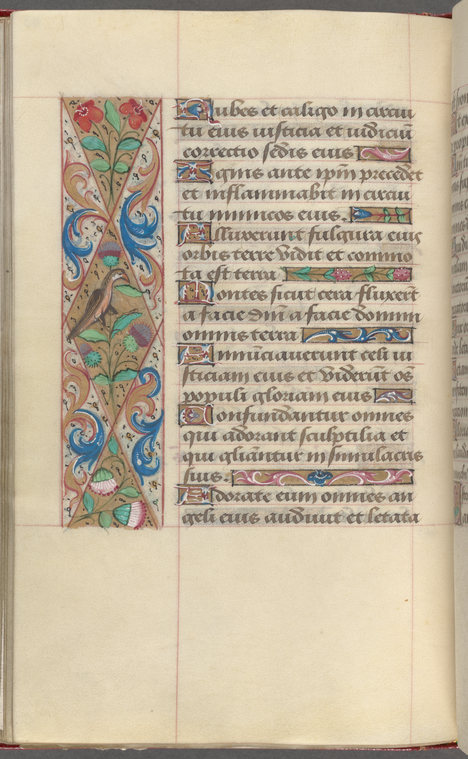 Nubes et caligo in circui
tu eius iusticia et iudiciũ
correctio sedis eius
Ignis ante ipm̃ precedet
et inflammabit in circui
tu inimicos eius.
Alluxerunt fulgura eius
orbis terre vidit et commo
ta est terra
Montes sicut cera fluxerũt
a facie dñi a facie domini
omnis terra
Annũciauerunt celi iu
sticiam eius et viderũt om̃s
populi gloriam eius
Confundantur omnes
qui adorant sculptilia et
qui gl̃iantur in simulacris
suis.
Adorate eum omnes an
geli eius audiuit et letata